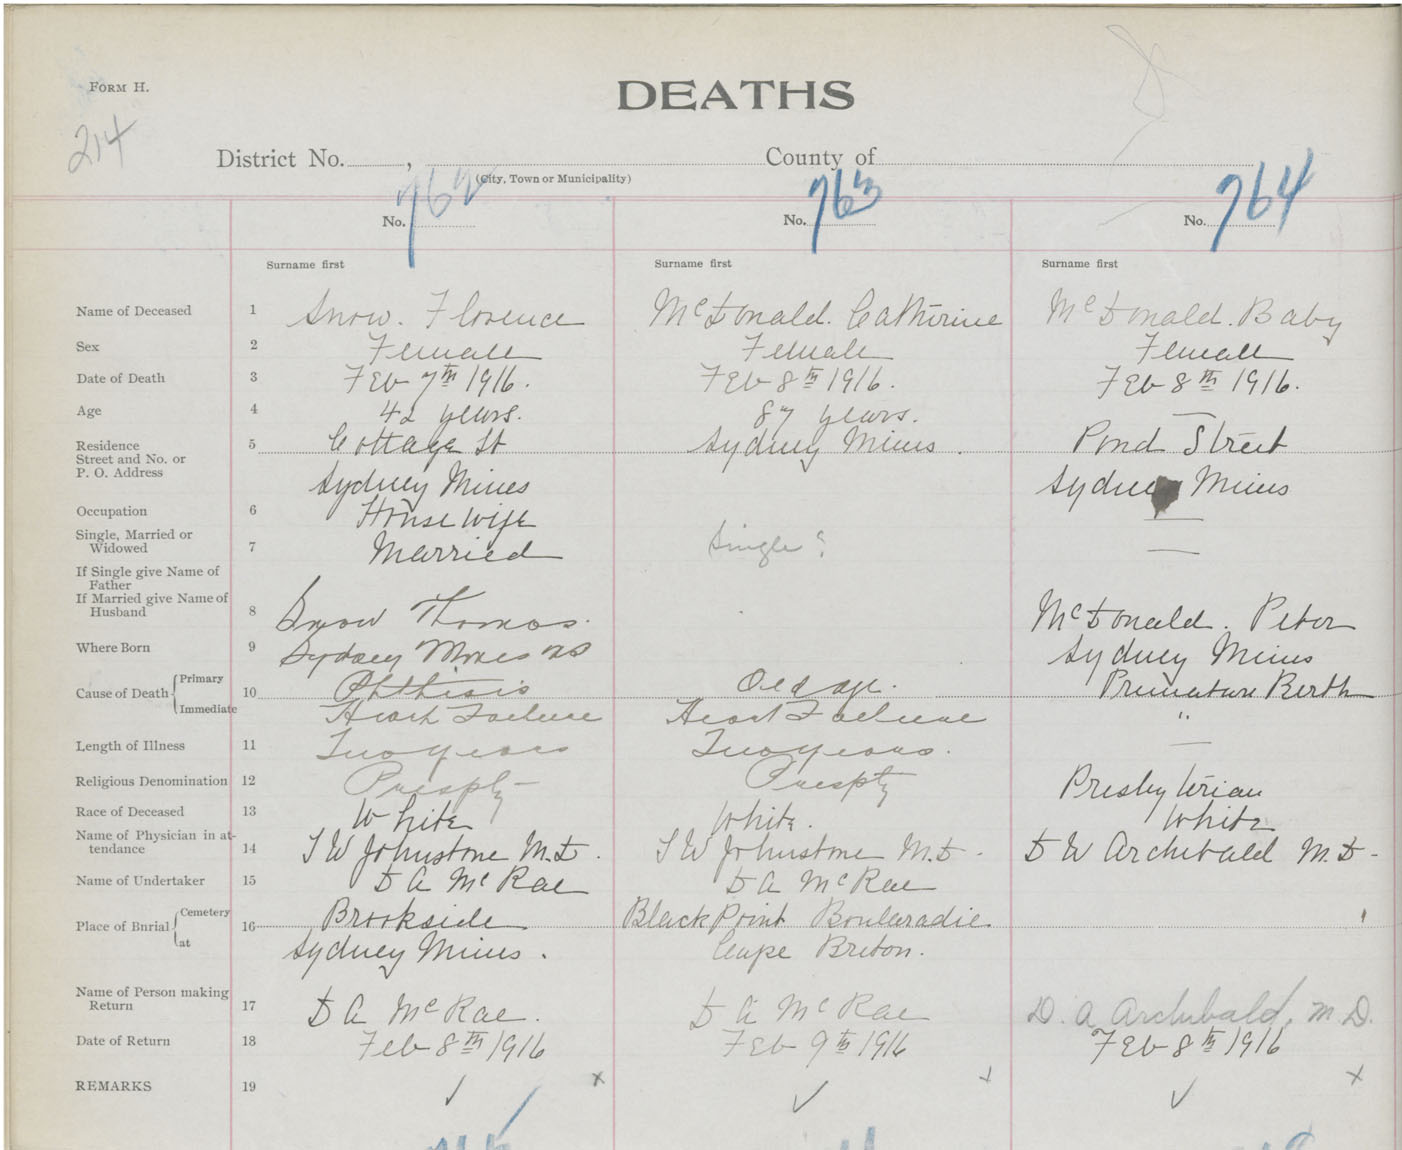 FORM H.
DEATHS
214
District No. , County of
(City, Town or Municipality)
No. 762 No. 763 No. 764
Surname first Surname first Surname first
Name of Deceased 1 Snow. Florence McDonald. Catherine McDonald. Baby
Sex 2 Female Female Female
Date of Death 3 Feb 7th 1916. Feb 8th 1916. Feb 8th 1916.
Age 4 42 years. 87 years. —
Residence 5 Cottage St Sydney Mines. Pond Street
Street and No. or
P. O. Address Sydney Mines Sydney Mines
Occupation 6 House wife —
Single, Married or
Widowed 7 Married Single? —
If Single give Name of
Father
If Married give Name of
Husband 8 Snow Thomas. McDonald. Peter
Where Born 9 Sydney Mines NS Sydney Mines
Cause of Death Primary 10 Phthisis Old age. Premature Birth
Immediate Heart Failure Heart Failure "
Length of Illness 11 Two years Two years. —
Religious Denomination 12 Presbty- Presbty Presbyterian
Race of Deceased 13 White White. White
Name of Physician in at-
tendance 14 T W Johnstone M.D. T W Johnstone M.D. D W Archibald M.D-
Name of Undertaker 15 D A McRae D A McRae
Place of Burial Cemetery 16 Brookside Black Point Boularadie
at Sydney Mines. Cape Breton.
Name of Person making
Return 17 D A McRae. D A McRae D. A Archibald, M.D.
Date of Return 18 Feb 8th 1916 Feb 9th 1916 Feb 8th 1916
REMARKS 19 ✓ x ✓ x ✓ x